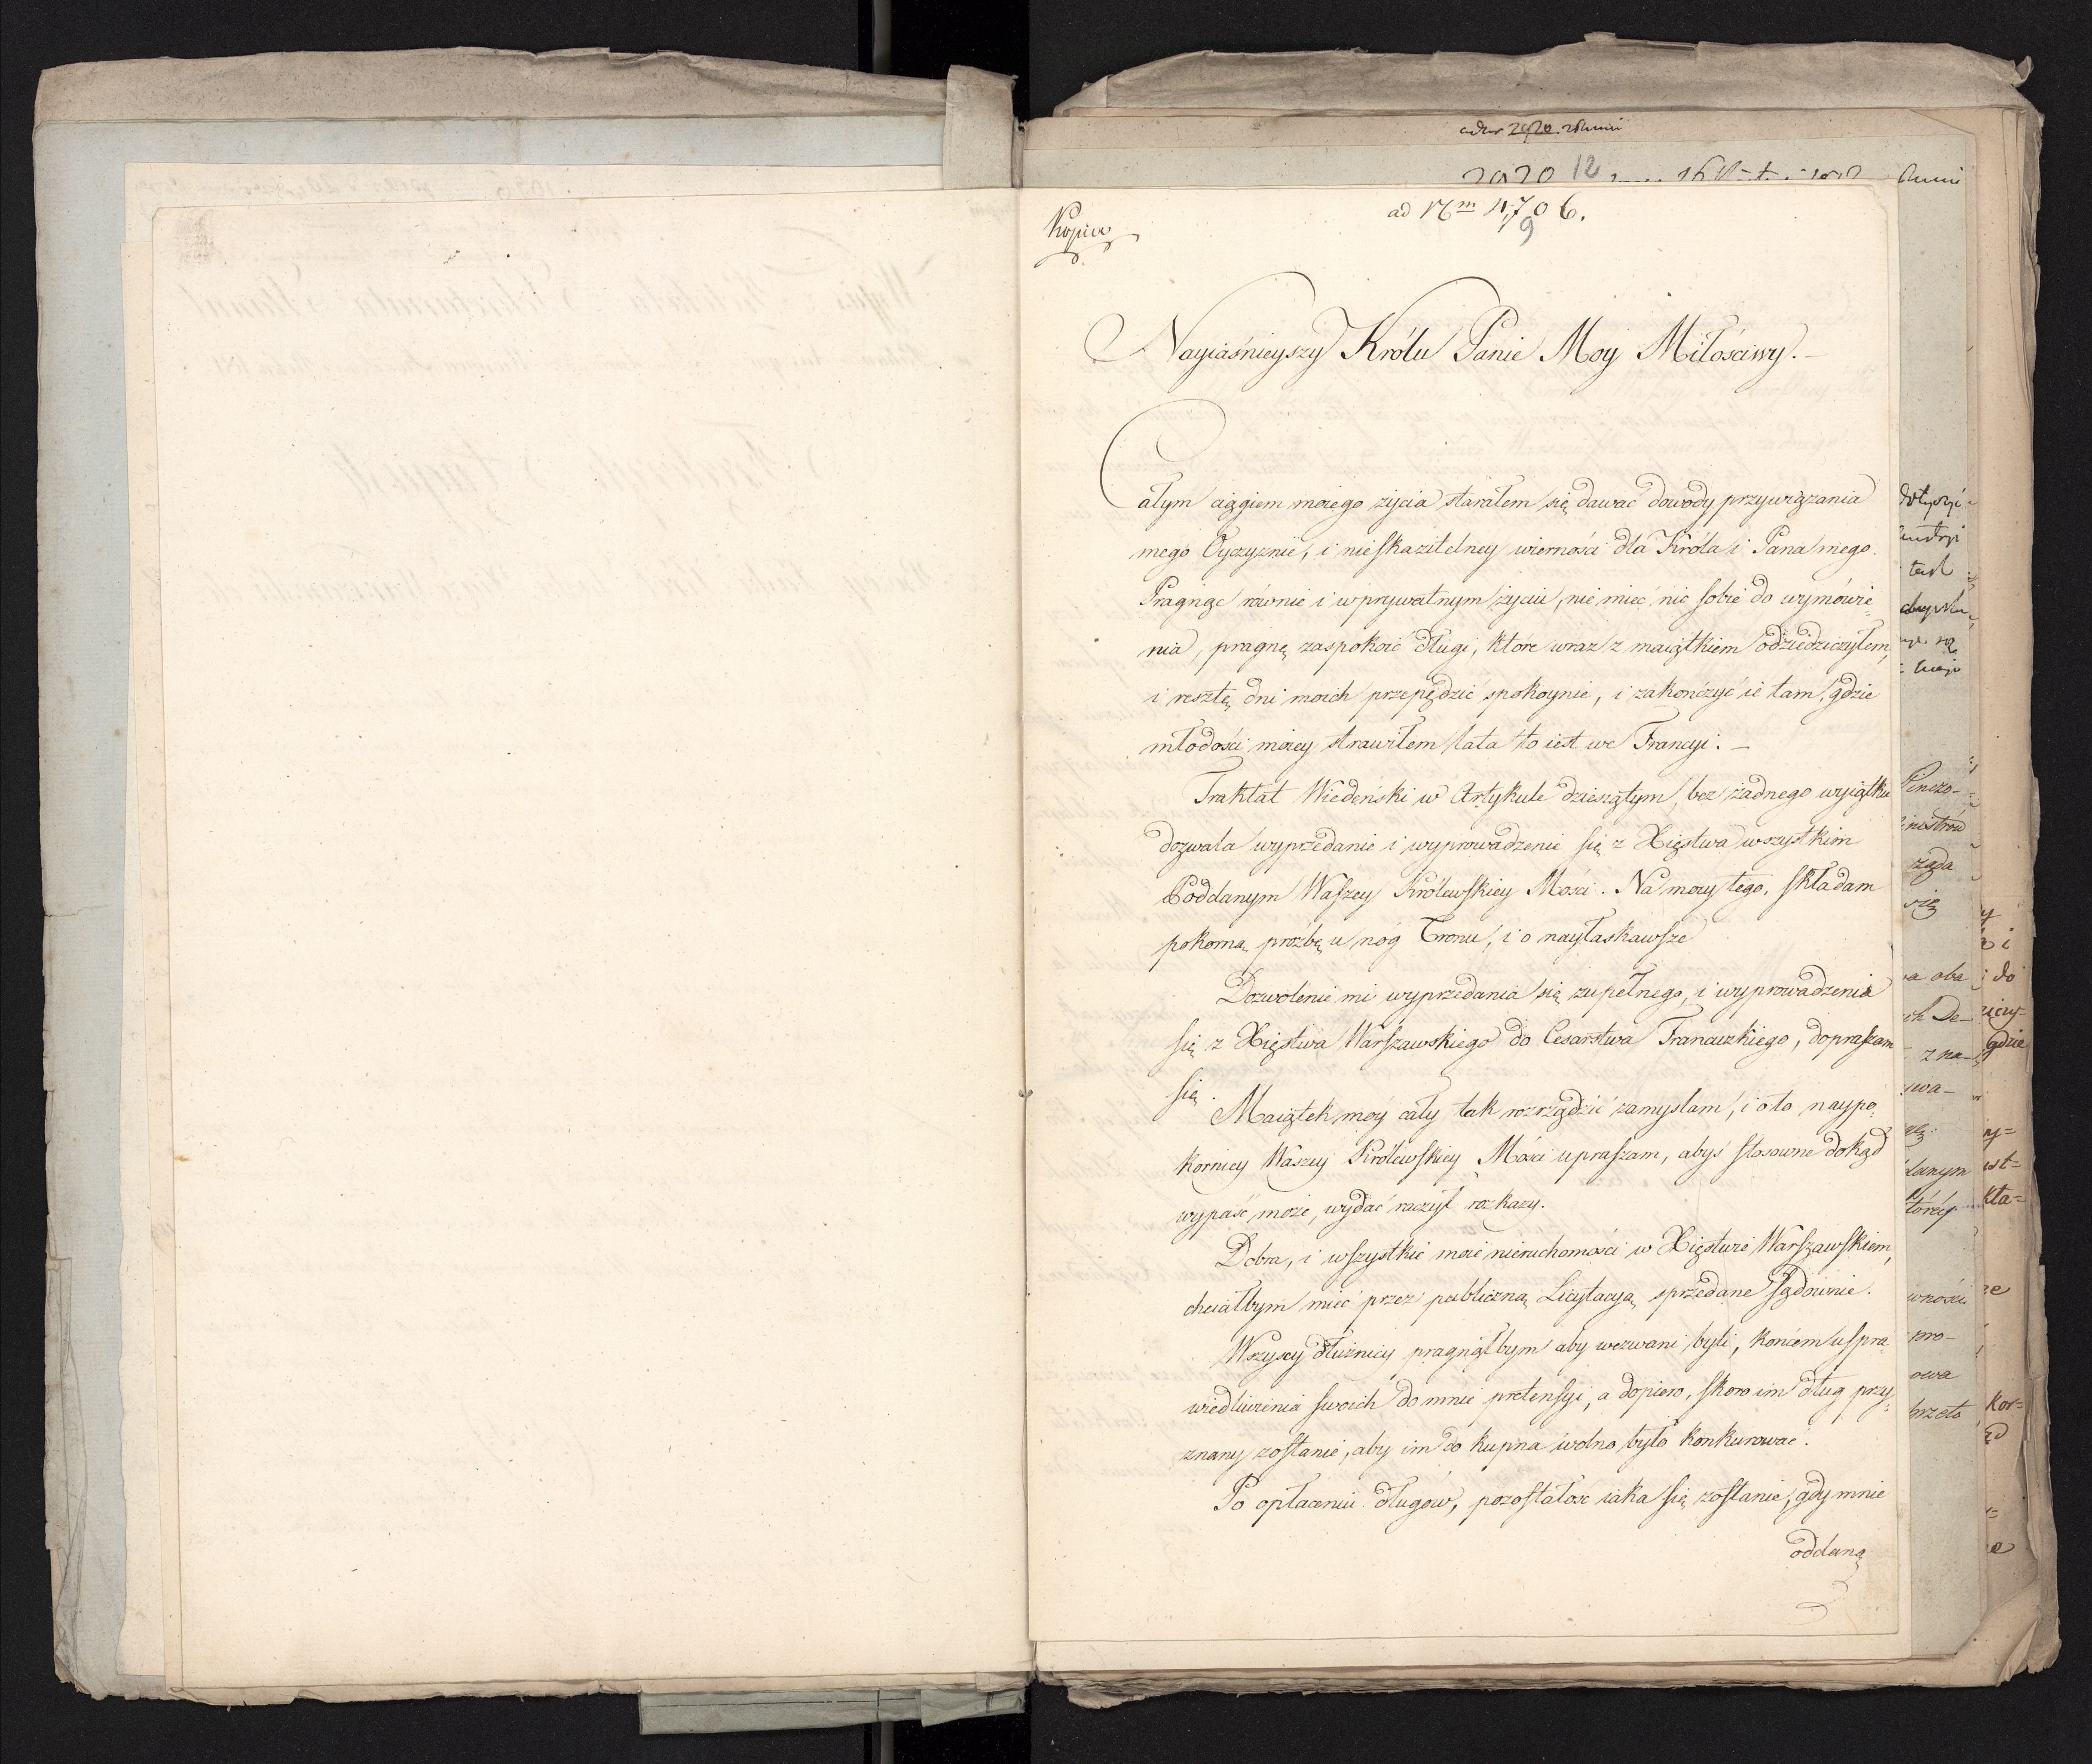 12
Kopia
ad Nm 11,706.
9
Nayiaśnieyszy Królu Panie Moy Miłościwy. —
Całym ciągiem moiego życia starałem się dawać dowody przywiązania
mego Oyczyznie, i nieskazitelney wierności dla Króla i Pana mego.
Pragnąc równie i w prywatnym życiu, nie mieć nic sobie do wymówie=
nia, pragnę zaspokoić długi, które wraz z maiątkiem odziedziczyłem,
i resztę dni moich przepędzić spokoynie, i zakończyć ie tam, gdzie
młodości moiey strawiłem lata to iest we Francyi. —
Traktat Wiedeński w Artykule dziesiątym, bez żadnego wyiątku
dozwala wyprzedanie i wyprowadzenie się z Xięstwa wszystkim
Poddanym Waszey Królewskiey Mości. Na mocy tego, składam
pokorną prożbę u nóg Tronu, i o nayłaskawsze
Dozwolenie mi wyprzedania się zupełnego, i wyprowadzenia
się z Xięstwa Warszawskiego do Cesarstwa Francuzkiego, dopraszam
się.
Maiątek móy cały tak rozrządzić zamyslam, i o to naypo=
korniey Waszey Królewskiey Mości upraszam, abyś stosowne dokąd
wypaść może, wydać raczył rozkazy.
Dobra, i wszystkie moie nieruchomości w Xięstwie Warszawskiem,
chciałbym mieć przez publiczną Licytacyą sprzedane sądownie.
Wszyscy dłużnicy pragnąłbym aby wezwani byli, końcem uspra
wiedliwienia swoich do mnie pretensyi, a dopiero, skoro im dług przy=
znany zostanie, aby im do kupna wolno było konkurować.
Po opłaceniu długów, pozostałość iaka się zostanie, gdy mnie
oddaną